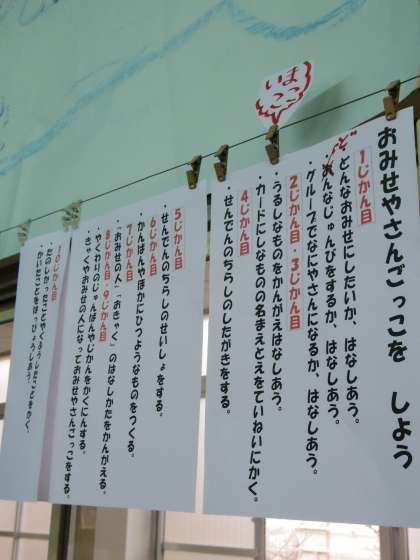 いま
ここ
おみせやさんごっこを しよう
1じかん目
・どんなおみせにしたいか、はなしあう。
・どんなじゅんびをするか、はなしあう。
・グループでなにやさんになるか、はなしあう
2じかん目・3じかん目
・うるしなものをかんがえはなしあう。
・カードにしなものの名まえとえをていねいにかく。
4じかん目
・せんでんのちらしのしたがきをする。
5じかん目
・せんでんのちらしのせいしょをする。
6じかん目
・かんばんやほかにひつようなものをつくる。
7じかん目
・「おみせの人」「おきゃく」のはなしかたをかんがえる。
8じかん目・9じかん目
・やくわりのじゅんばんやじかんをかくにんする。
・きゃくやおみせの人になっておみせやさんごっこをする。
10じかん目
・たのしかったことやくふうしたことをかく。
・かいたことをはっぴょうしあう。